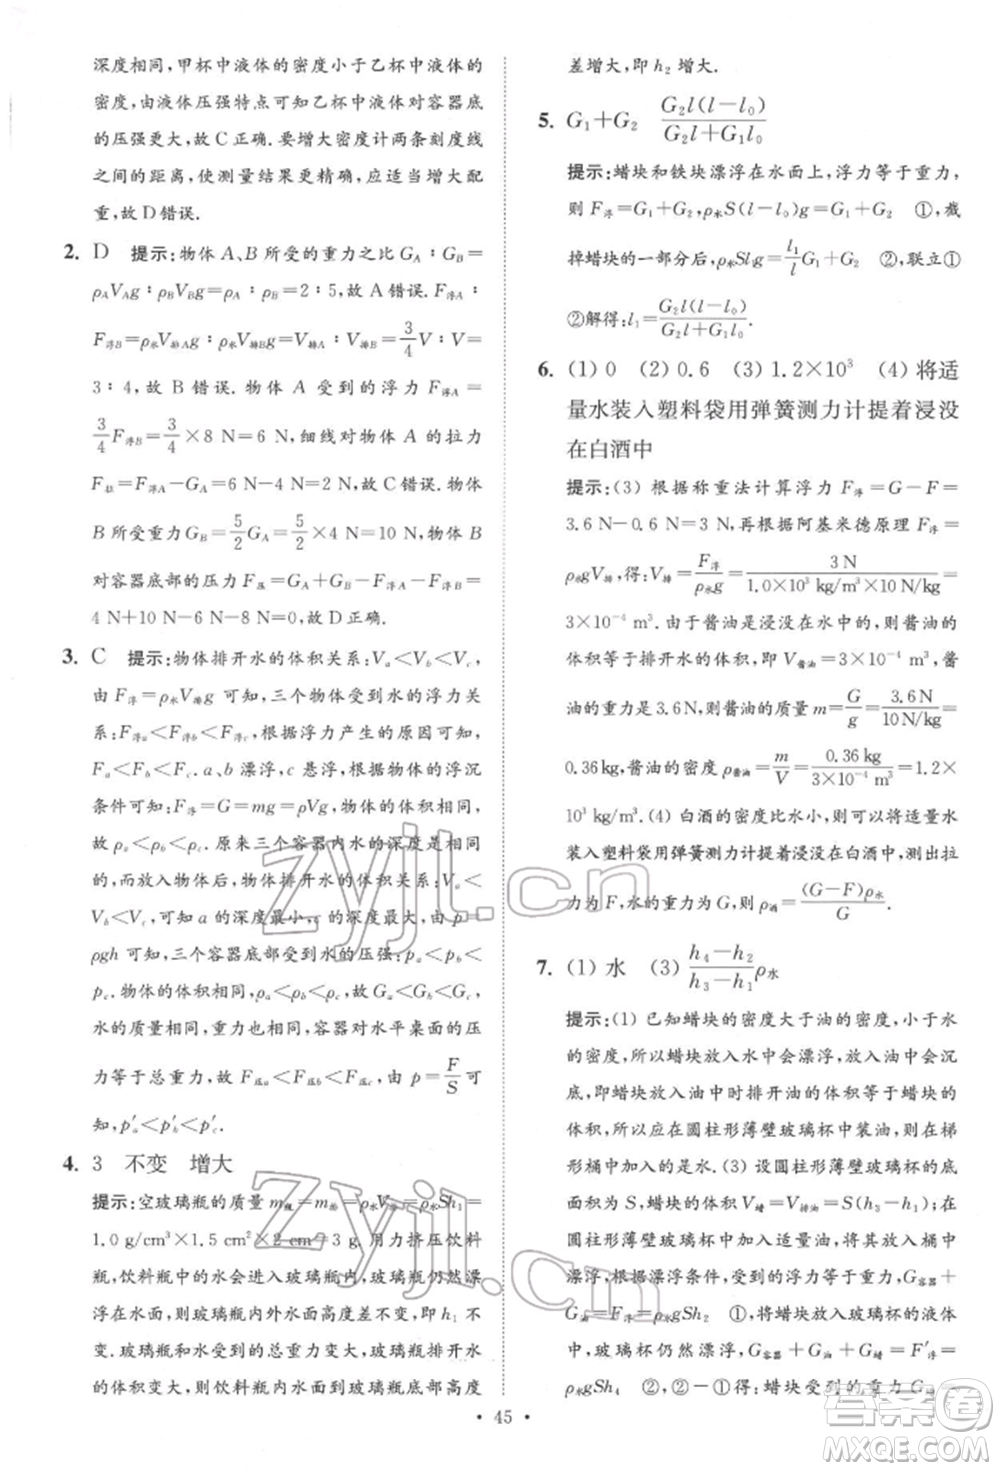 深度相同,甲杯中液体的密度小于乙杯中液体的
密度,由液体压强特点可知乙杯中液体对容器底
的压强更大,故 C 正确.要增大密度计两条刻度线
之间的距离,使测量结果更精确,应适当增大配
重,故 D 错误.
2. D 提示:物体 A、B 所受的重力之比 G_A∶G_B=
ρ_A V_A g∶ρ_B V_B g=ρ_A∶ρ_B=2∶5,故 A 错误.F_浮A∶
F_浮B=ρ_水 V_排A g∶ρ_水 V_排B g=V_排A∶V_排B=3/4 V∶V=
3∶4,故 B 错误.物体 A 受到的浮力 F_浮A=
3/4 F_浮B=3/4×8 N=6 N,细线对物体 A 的拉力
F_拉=F_浮A-G_A=6 N-4 N=2 N,故 C 错误.物体
B 所受重力 G_B=5/2 G_A=5/2×4 N=10 N,物体 B
对容器底部的压力 F_压=G_A+G_B-F_浮A-F_浮B=
4 N+10 N-6 N-8 N=0,故 D 正确.
3. C 提示:物体排开水的体积关系:V_a<V_b<V_c,
由 F_浮=ρ_水 V_排 g 可知,三个物体受到水的浮力关
系:F_浮a<F_浮b<F_浮c,根据浮力产生的原因可知,
F_a<F_b<F_c.a、b 漂浮,c 悬浮,根据物体的浮沉
条件可知:F_浮=G=mg=ρVg,三个物体的体积相
同,故 ρ_a<ρ_b<ρ_c.原来三个容器内水的深度相同,
而放入物体后,物体排开水的体积关系:V_a<
V_b<V_c,可知 a 的深度最小,c 的深度最大,由 p=
ρgh 可知,三个容器底部受到水的压强:p_a<p_b<
p_c.物体的体积相同,ρ_a<ρ_b<ρ_c,故 G_a<G_b<G_c,
水的质量相同,重力也相同,容器对水平桌面的压
力等于总重力,故 F_压a<F_压b<F_压c,由 p=F/S 可
知,p′_a<p′_b<p′_c.
4. 3 不变 增大
提示:空玻璃瓶的质量 m_瓶=m_排=ρ_水 V_排=ρ_水 Sh₁=
1.0 g/cm³×1.5 cm²×2 cm=3 g.用力挤压饮料
瓶,饮料瓶中的水会进入玻璃瓶内,玻璃瓶仍然漂
浮在水面上,则玻璃瓶内外水面高度差不变,即 h₁ 不
变.玻璃瓶和水受到的总重力变大,排开水
的体积变大,则饮料瓶内水面到玻璃瓶底的高度
差增大,即 h₂ 增大.
5. G₁+G₂ G₂l(l-l₀)/(G₂l+G₁l₀)
提示:蜡块和铁块漂浮在水面上,浮力等于重力,
则 F_浮=G₁+G₂,ρ_水 S(l-l₀)g=G₁+G₂ ①,截
掉蜡块的一部分后,ρ_水 Sl₁g=l₁/l G₁+G₂ ②,联立①
②解得:l₁=G₂l(l-l₀)/(G₂l+G₁l₀).
6. (1) 0 (2) 0.6 (3) 1.2×10³ (4) 将适
量水装入塑料袋用弹簧测力计提着浸没
在白酒中
提示:(3) 根据称重法计算浮力 F_浮=G-F=
3.6 N-0.6 N=3 N,再根据阿基米德原理 F_浮=
ρ_水 gV_排,得:V_排=F_浮/(ρ_水 g)=3 N/(1.0×10³ kg/m³×10 N/kg)=
3×10⁻⁴ m³.由于酱油是浸没在水中的,所以酱油的
体积等于排开水的体积,即 V_酱油=3×10⁻⁴ m³,酱
油的重力是3.6 N,则酱油的质量 m=G/g=3.6 N/(10 N/kg)=
0.36 kg,酱油的密度 ρ_酱油=m/V=0.36 kg/(3×10⁻⁴ m³)=1.2×
10³ kg/m³.(4) 白酒的密度比水小,则可以将适量水
装入塑料袋用弹簧测力计提着浸没在白酒中,测出拉
力为 F,水的重力为 G,则 ρ_酒=(G-F)ρ_水/G.
7. (1) 水 (3) (h₄-h₂)/(h₃-h₁) ρ_水
提示:(1) 已知蜡块的密度大于油的密度,小于水
的密度,所以蜡块放入水中会漂浮,放入油中会沉
底,即蜡块放入油中时排开油的体积等于蜡块的
体积,所以应在圆柱形薄壁玻璃杯中加入油,在圆柱
形桶中加入水.(3) 设圆柱形薄壁玻璃杯的底
面积为 S,蜡块的体积 V_蜡=V_排油=S(h₃-h₁),在
圆柱形薄壁玻璃杯中加入适量油,放入水桶中漂
浮,根据漂浮条件,受到的浮力等于重力,G_容器+
G_油=F_浮=ρ_水 gSh₂ ①,将蜡块放入玻璃杯的液体
中,玻璃杯仍然漂浮,G_容器+G_油+G_蜡=F′_浮=
ρ_水 gSh₄ ②,②-①得:蜡块受到的重力 G_蜡=
· 45 ·
zyjl.cn
zyjl.cn
答案圈
MXQE.COM